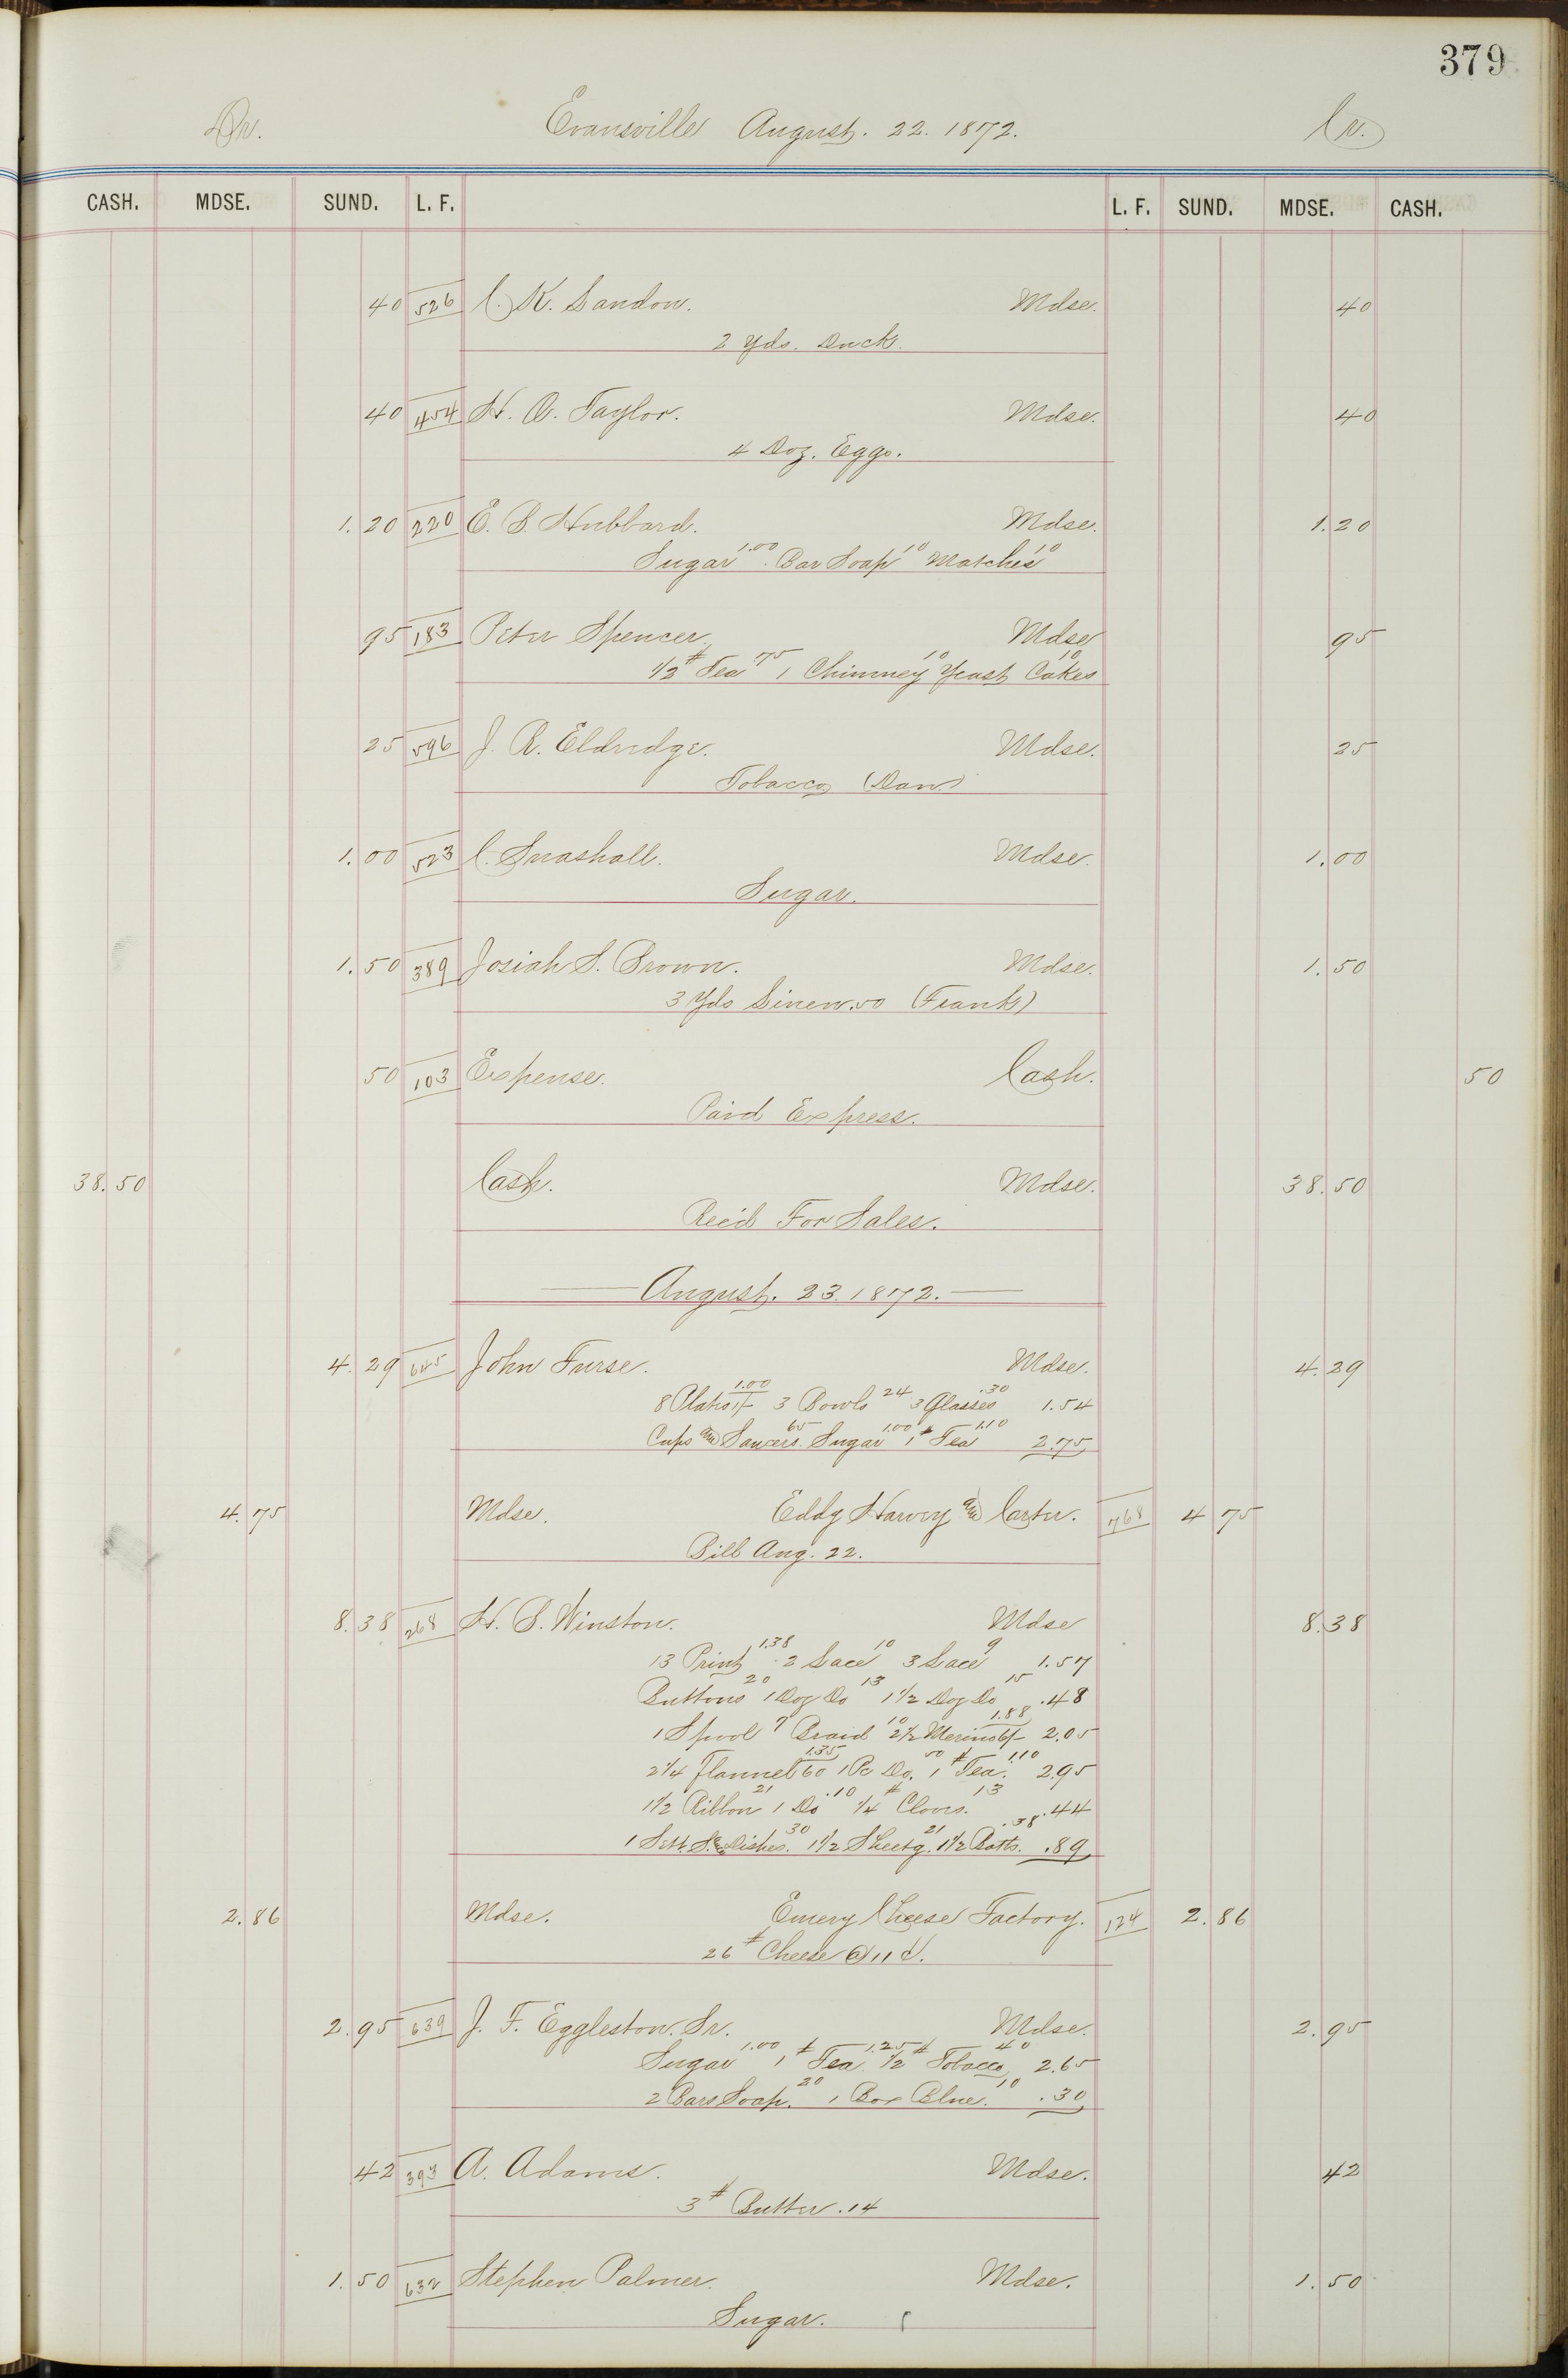 379
Dr. Evansville August. 22. 1872. Cr.
CASH. MDSE. SUND. L. F. L. F. SUND. MDSE. CASH.
40 526 C. K. Landon. Mdse. 40
2 Yds. Duck.
40 454 H. A. Taylor. Mdse. 40
4 Doz. Eggs.
1.20 220 E. B. Hubbard. Mdse. 1.20
Sugar 1.00 Bar Soap 10 Matches 10
95 183 Peter Spencer. Mdse 95
1/2 # Tea 75 1 Chimney 10 Yeast Cakes 10
25 596 J. R. Eldredge. Mdse. 25
Tobacco (Dan)
1.00 523 C. Snashall. Mdse. 1.00
Sugar.
1.50 389 Josiah S. Brown. Mdse. 1.50
3 Yds Linen .50 (Frank)
50 103 Expense. Cash. 50
Paid Express.
38.50 Cash. Mdse. 38.50
Rec'd For Sales.
August. 23. 1872.
4.29 645 John Furse. Mdse. 4.29
8 Plates 1/- 1.00 3 Bowls 24 3 Glasses .30 1.54
Cups and Saucers 65 Sugar 1.00 1 # Tea 1.10 2.75
4.75 Mdse. Eddy Harvey and Carter. 768 4 75
Bill Aug. 22.
8.38 268 H. S. Winston. Mdse 8.38
13 Print 1.38 2 Lace 10 3 Lace 9 1.57
Buttons 20 1 Doz Do 13 1 1/2 Doz Do 15 .48
1 Spool 7 Braid 10 2 1/2 Merino 6/- 1.88 2.05
2 1/4 Flannel 60 1.35 1 Pc Do. 50 1 # Tea. 1.10 2.95
1 1/2 Ribbon 21 1 Do .10 1/4 # Cloves. 13 .44
1 Sett. Dishes. 30 1 1/2 Sheetg. 21 1 1/2 Batts. .38 .89
2.86 Mdse. Emery Cheese Factory. 124 2.86
26 # Cheese @ 11 ¢.
2.95 639 J. F. Eggleston. Sr. Mdse. 2.95
Sugar 1.00 1 # Tea 1.25 1/2 # Tobacco 40 2.65
2 Bars Soap. 20 1 Box Blue. 10 .30
42 393 A. Adams. Mdse. 42
3 # Butter .14
1.50 632 Stephen Palmer. Mdse. 1.50
Sugar.